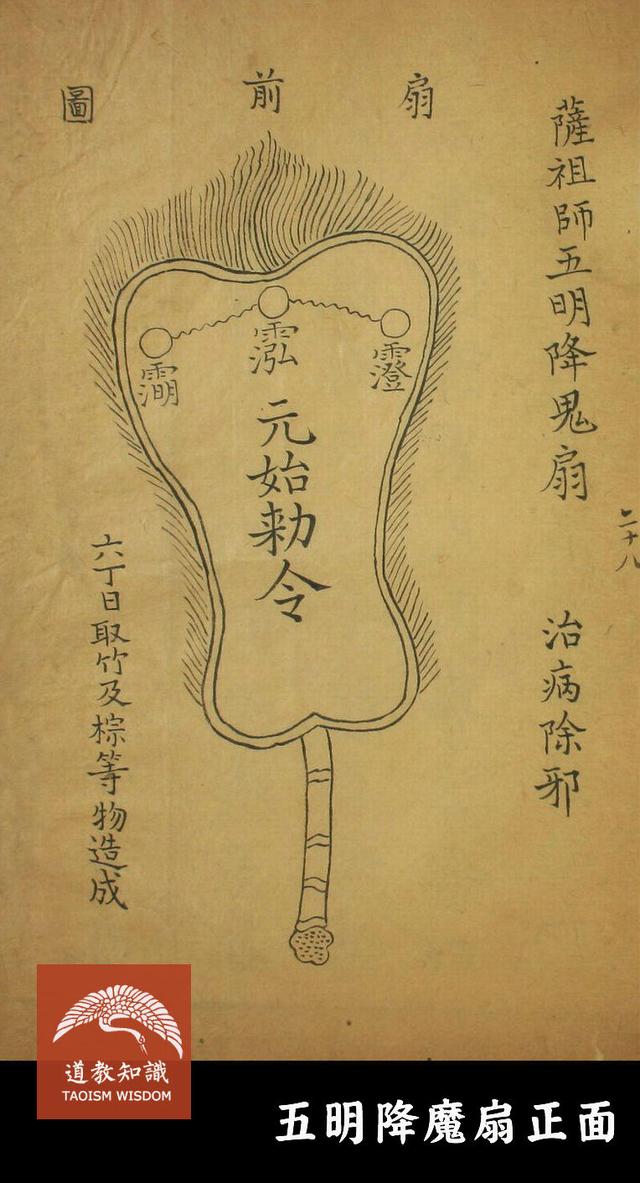 薩祖師五明降鬼扇 治病除邪
二十八
扇前圖
霐
元始勅令
六丁日取竹及棕等物造成
道教知識
TAOISM WISDOM
五明降魔扇正面